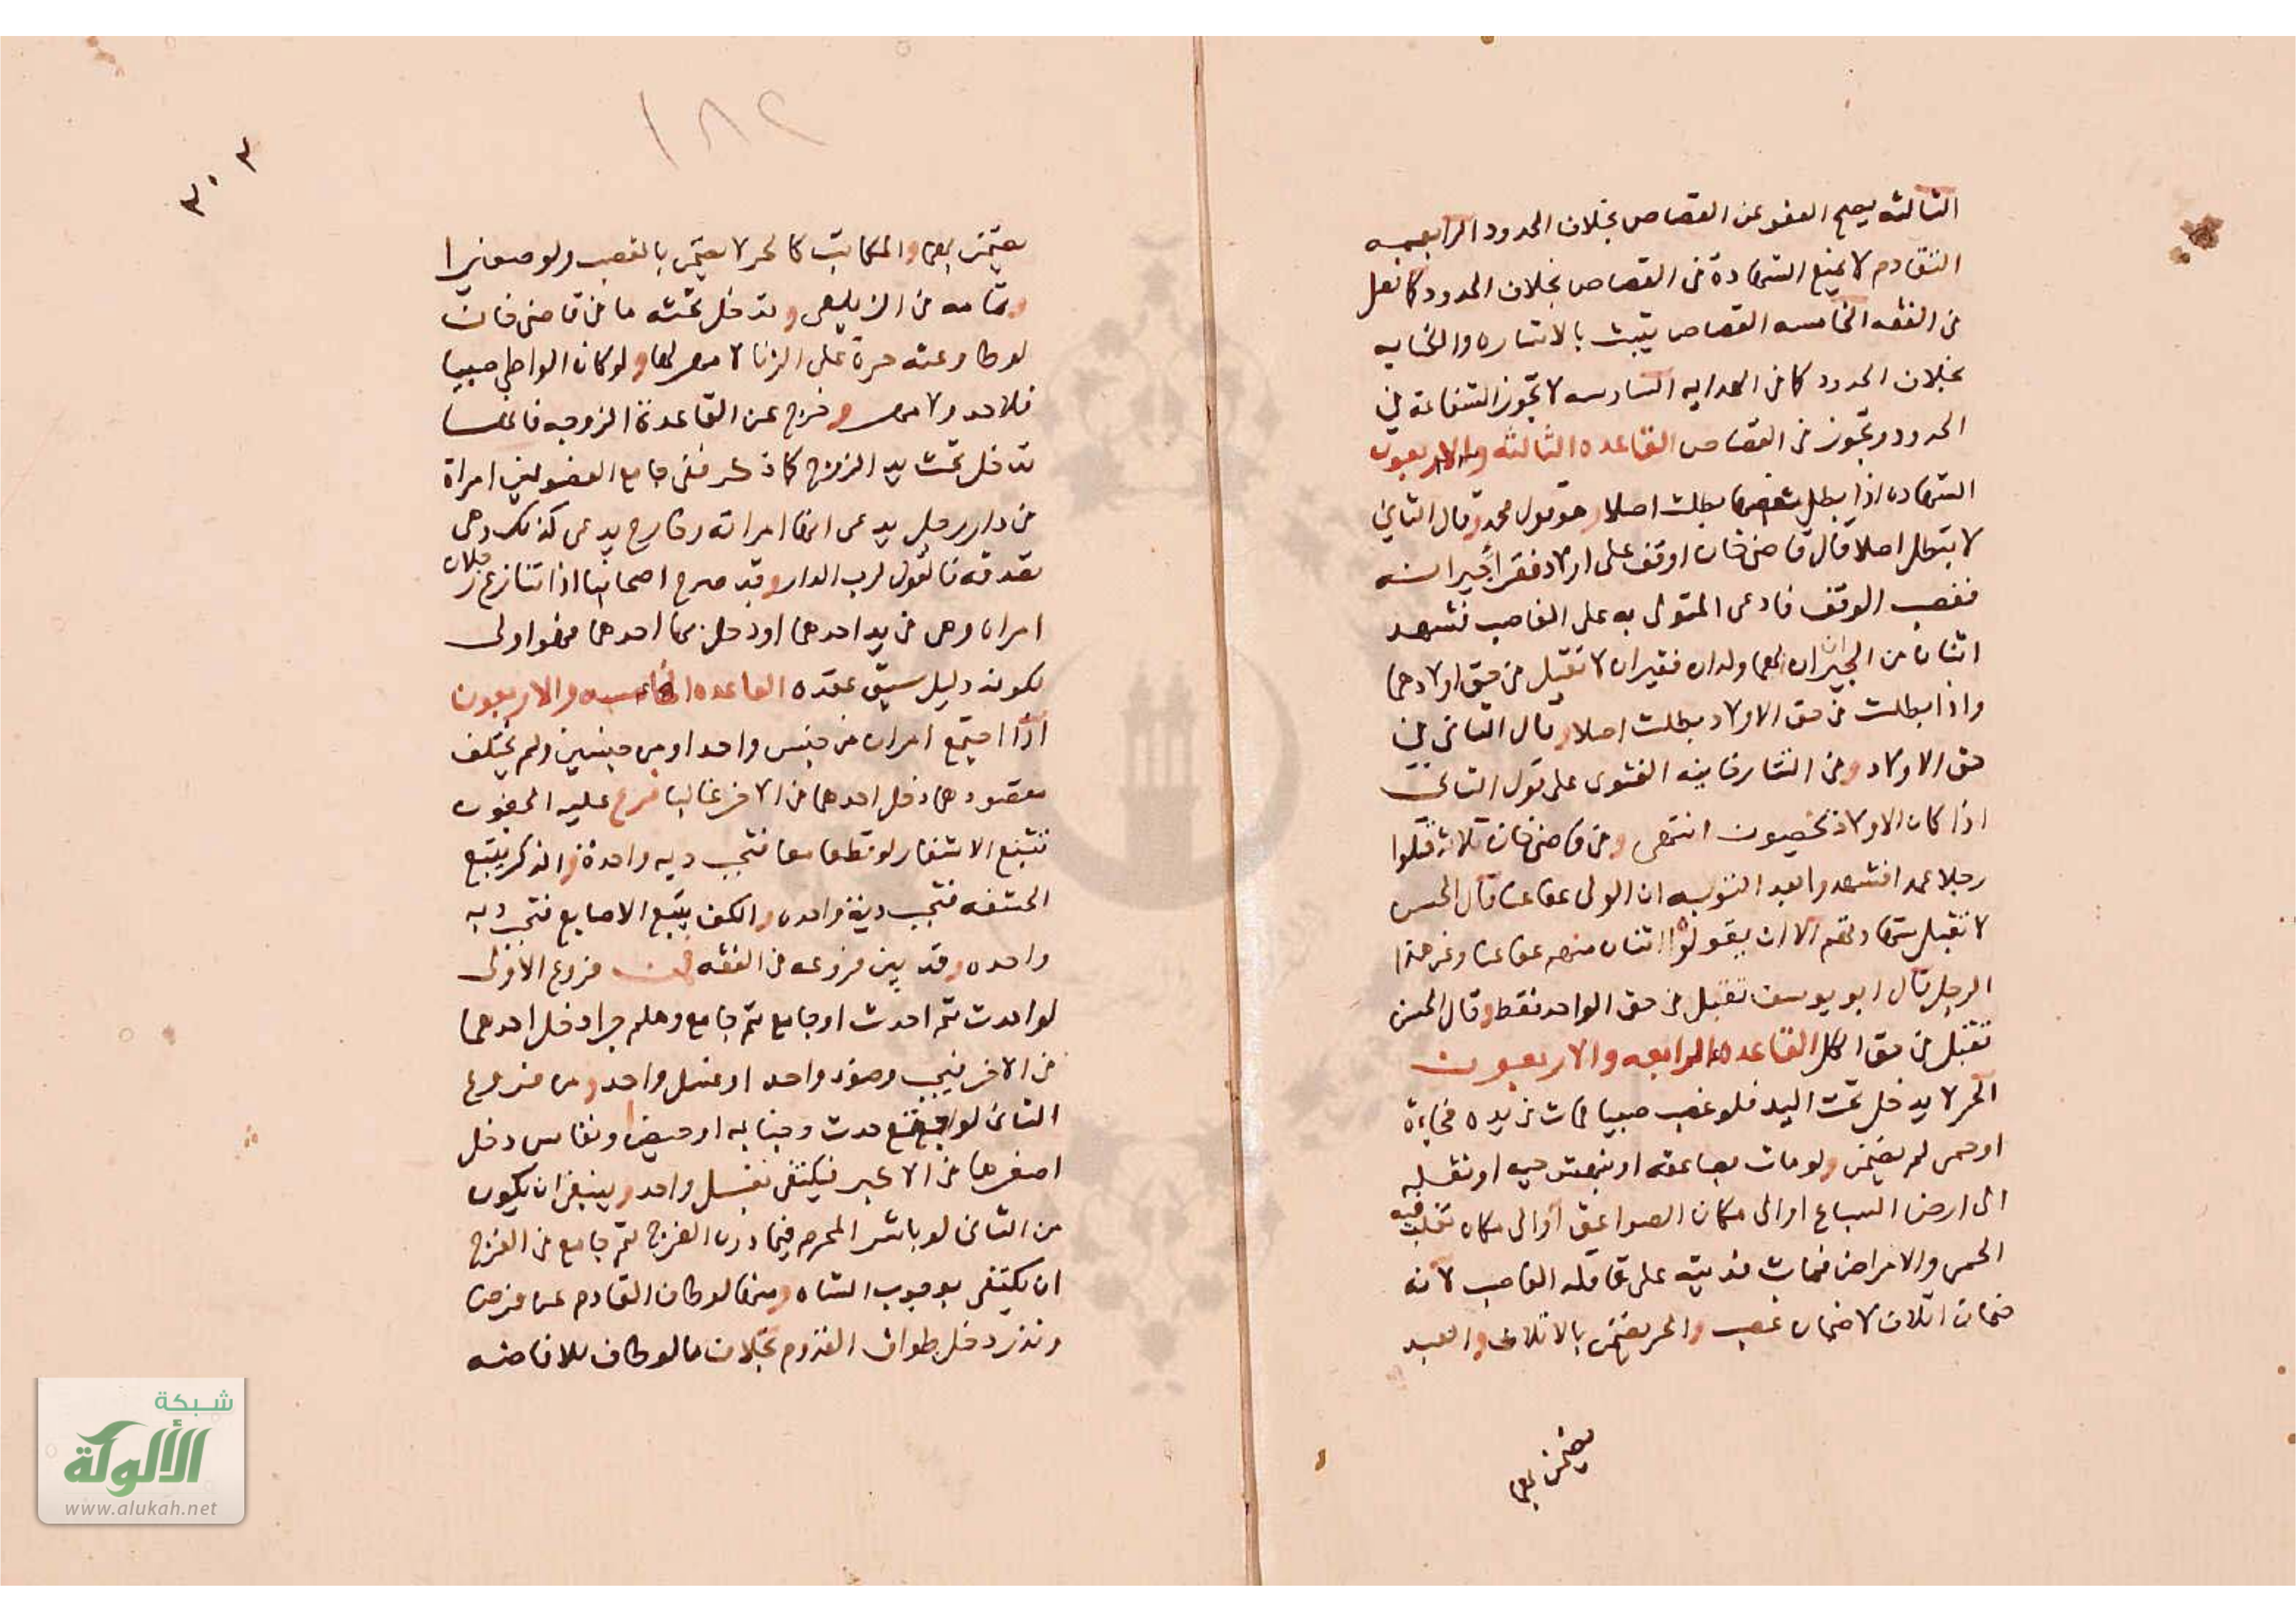 الثالثه يصح العفو عن القصاص بخلاف الحدود الرابعه
التقادم لا يمنع الشهادة في القصاص بخلاف الحدود كما نقل
في الفقه الخامسه القصاص يثبت بالاشاره والكتابه
بخلاف الحدود كما في الهدايه السادسه لا تجوز الشفاعة في
الحدود وتجوز في القصاص القاعده الثالثه والاربعون
الشهاده اذا بطل بعضها بطلت اصلا وهو قول محمد وقال الثاني
لا يتبطل اصلا قال قاضي خان اوقف على اولاد فقرا جيرانه
فغصب الوقف فادعى المتولى به على الغاصب فشهد
اثنان من الجيران لهما ولدان فقيران لا تقبل في حق اولادهما
واذا بطلت في حق الاولاد بطلت اصلا وقال الثاني في
حق الاولاد وفي التتارخانيه الفتوى على قول الثاني
اذا كان الاولاد يحصون انتهى وفي قاضي خان ثلاثه قتلوا
رجلا عمدا فشهدوا بعد التوبه ان الولى عفا عنا قال الحسن
لا تقبل شهادتهم الا ان يقولوا اثنان منهم عفا عنا وعن هذا
الرجل قال ابو يوسف تقبل في حق الواحد فقط وقال الحسن
تقبل في حق الكل القاعده الرابعه والاربعون
الحر لا يدخل تحت اليد فلو غصب صبيا فمات في يده فجاءة
او حمى لم يضمن ولو مات بصاعقه او نهشه حيه او نقله
الى ارض السباع او الى مكان الصواعق او الى مكان تغلب فيه
الحمى والامراض فمات فديته على عاقله الغاصب لانه
ضمان اتلاف لا ضمان غصب والحر يضمن بالاتلاف والعبد
يضمن بهما
١٨٢
٣٠٣
يضمن بهما والمكاتب كالحر لا يضمن بالغصب ولو صغيرا
وتمامه في الزيلعي وتدخل تحته ما في قاضي خان
لو طاوعته حرة على الزنا لا مهر لها ولو كان الواطي صبيا
فلا حد ولا مهر وخرج عن القاعدة الزوجه فانها
تدخل تحت يد الزوج كما ذكر ففي جامع الفصولين امراة
في دار رجل يدعى انها امراته وخارج يدعى كذلك وهى
تصدقه فالقول لرب الدار وقد صرح اصحابنا اذا تنازع رجلان
امراه وهى في يد احدهما او دخل بها احدهما فهو اولى
لكونه دليل سبق عقده القاعده الخامسه والاربعون
اذا اجتمع امران من جنس واحد او من جنسين ولم يختلف
مقصودهما دخل احدهما في الاخر غالبا فرع عليه الجفون
تتبع الاشفار لو قطعا معا فتجب ديه واحدة والذكر يتبع
الحشفه فتجب دية واحده والكف يتبع الاصابع فتجب ديه
واحده وقد بين فروعه في الفقه فمن فروع الاولى
لو احدث ثم احدث او جامع ثم جامع وهلم جرا دخل احدهما
في الاخر فيجب وضوء واحد او غسل واحد ومن فروع
الثاني لو اجتمع حدث وجنابه او حيض او نفاس دخل
اصغرها في الاكبر فيكتفى بغسل واحد وينبغي ان يكون
من الثاني لو باشر المحرم فيما دون الفرج ثم جامع في الفرج
ان يكتفى بوجوب الشاه ومنها لو طاف القادم عن فرض
ونذر دخل طواف القدوم بخلاف ما لو طاف للافاضه
شبكة
الألوكة
www.alukah.net